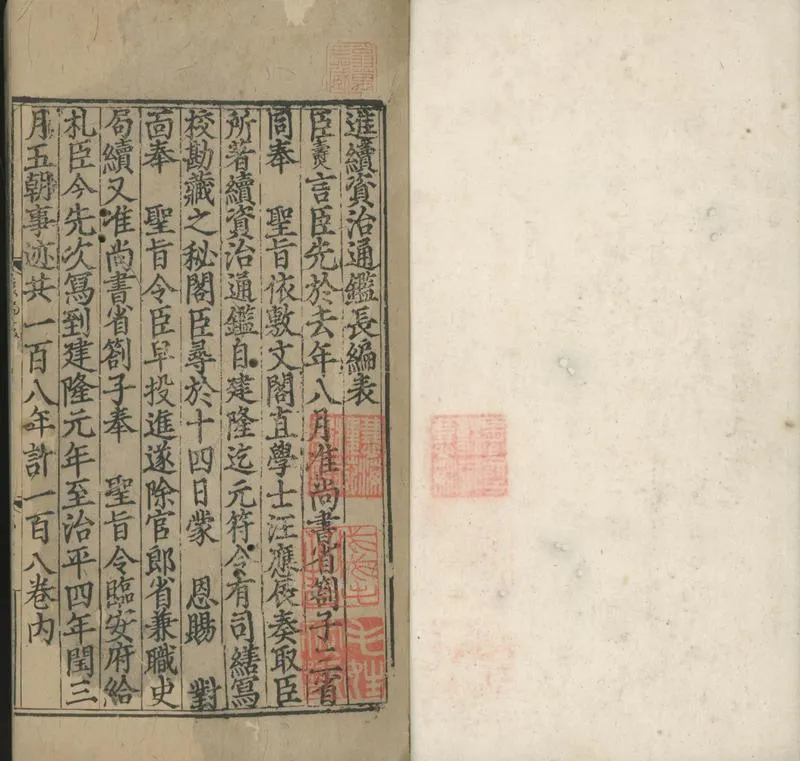 進續資治通鑑長編表
臣燾言臣先於去年八月准尚書省劄子三省
同奉　聖旨依敷文閣直學士汪應辰奏取臣
所著續資治通鑑自建隆迄元符令有司繕寫
校勘藏之秘閣臣尋於十四日蒙　恩賜　對
面奉　聖旨令臣早投進遂除官郎省兼職史
局續又准尚書省劄子奉　聖旨令臨安府給
札臣今先次寫到建隆元年至治平四年閏三
月五朝事迹共一百八年計一百八卷内